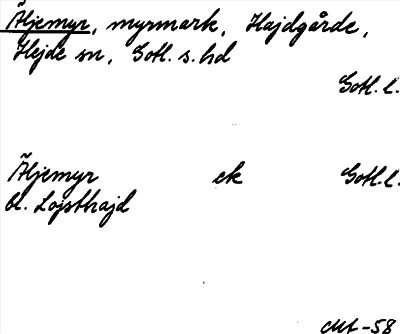 Äljemyr, myrmark, Hajdgårde,
Hejde sn, Gotl. s. hd
Gotl. l.
Äljemyr ek Gotl. l.
Lojsthajd
-58